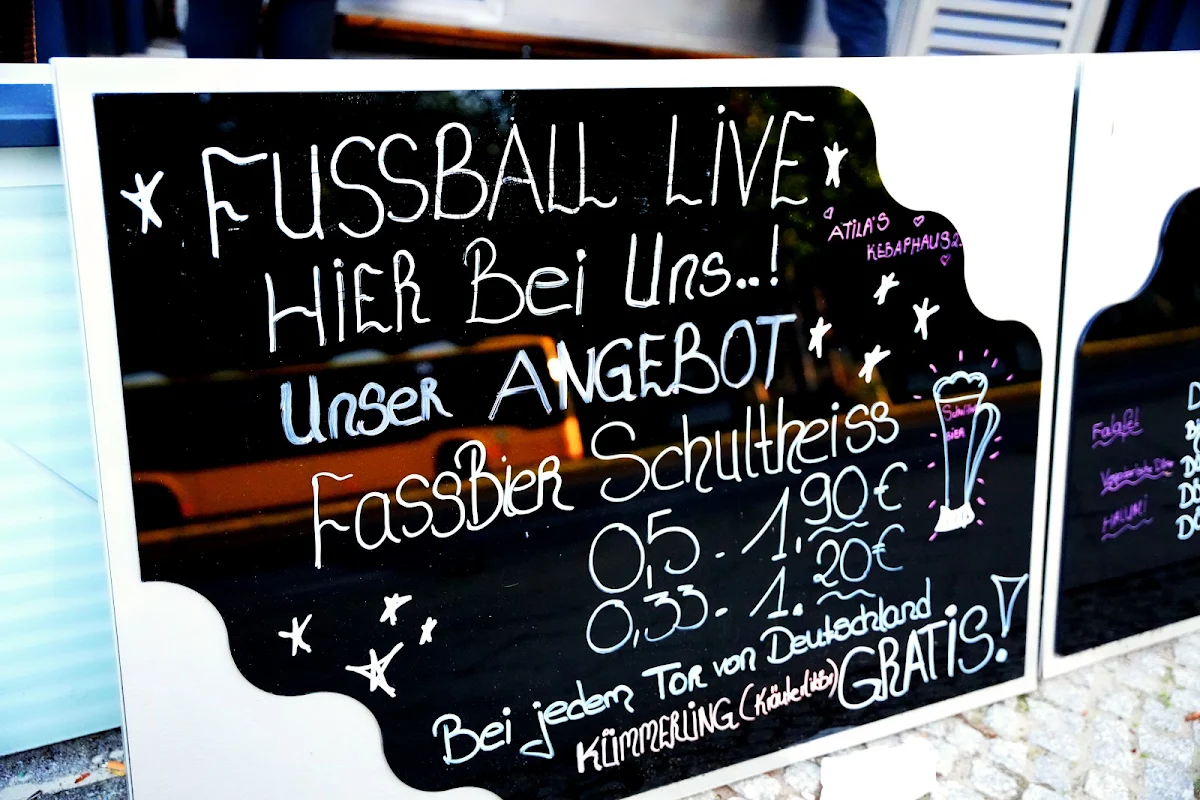 FUSSBALL LIVE
HiER Bei Uns..!
ATiLA'S
KEBAPHAUS
UnSER ANGEBOT
FassBieR Schultheiss
0,5. 1.90€
0,33. 1.20€
BiER
Bei jedem TOR von Deutschland
KÜMMERLiNG (Kräuterlikör) GRATiS!
Falafel
HALUMi